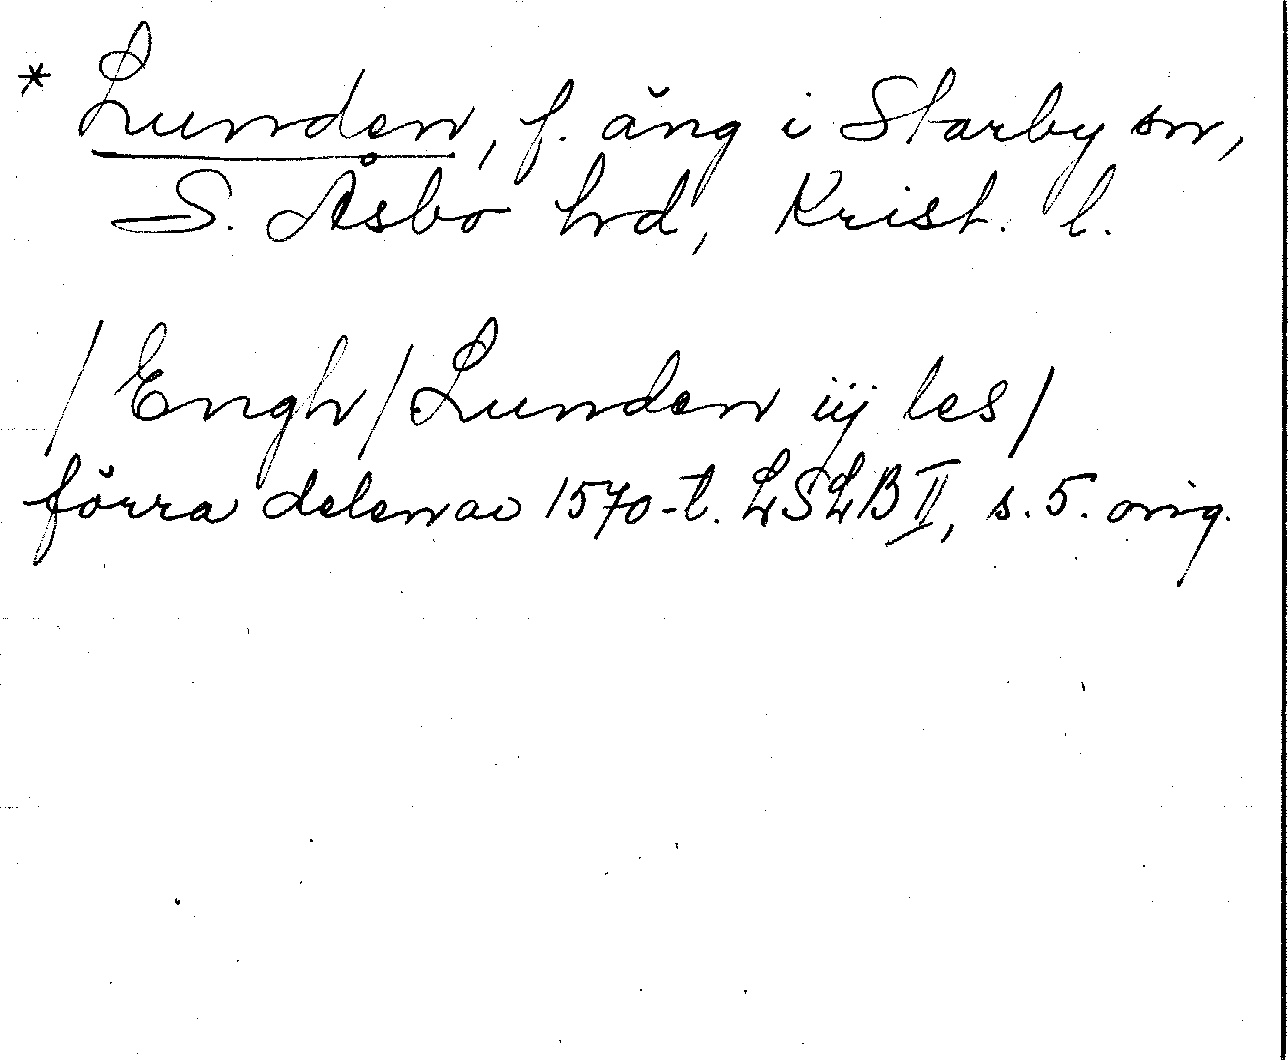 * Lunden, f. äng i Starby sn,
S. Åsbo hrd, Krist. l.
/Engh/Lunden iij les/
förra delen av 1570-t. LSLB II, s. 5. orig.